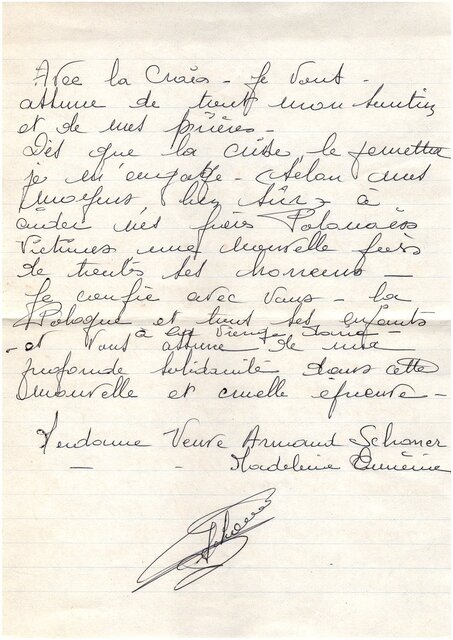 Avec la Croix - Je vous -
assure de tout mon soutien
et de mes prières -
Dès que la crise le permettra
je m'engage - selon mes
moyens, bien sûr - à
aider mes frères Polonais
victimes une nouvelle fois
de toutes ces horreurs -
Je confie avec vous - la
Pologne et tous ses enfants
à la Vierge
- et vous assure de ma
profonde solidarité dans cette
nouvelle et cruelle épreuve -
Madame Veuve Armand Schoner
Madeleine